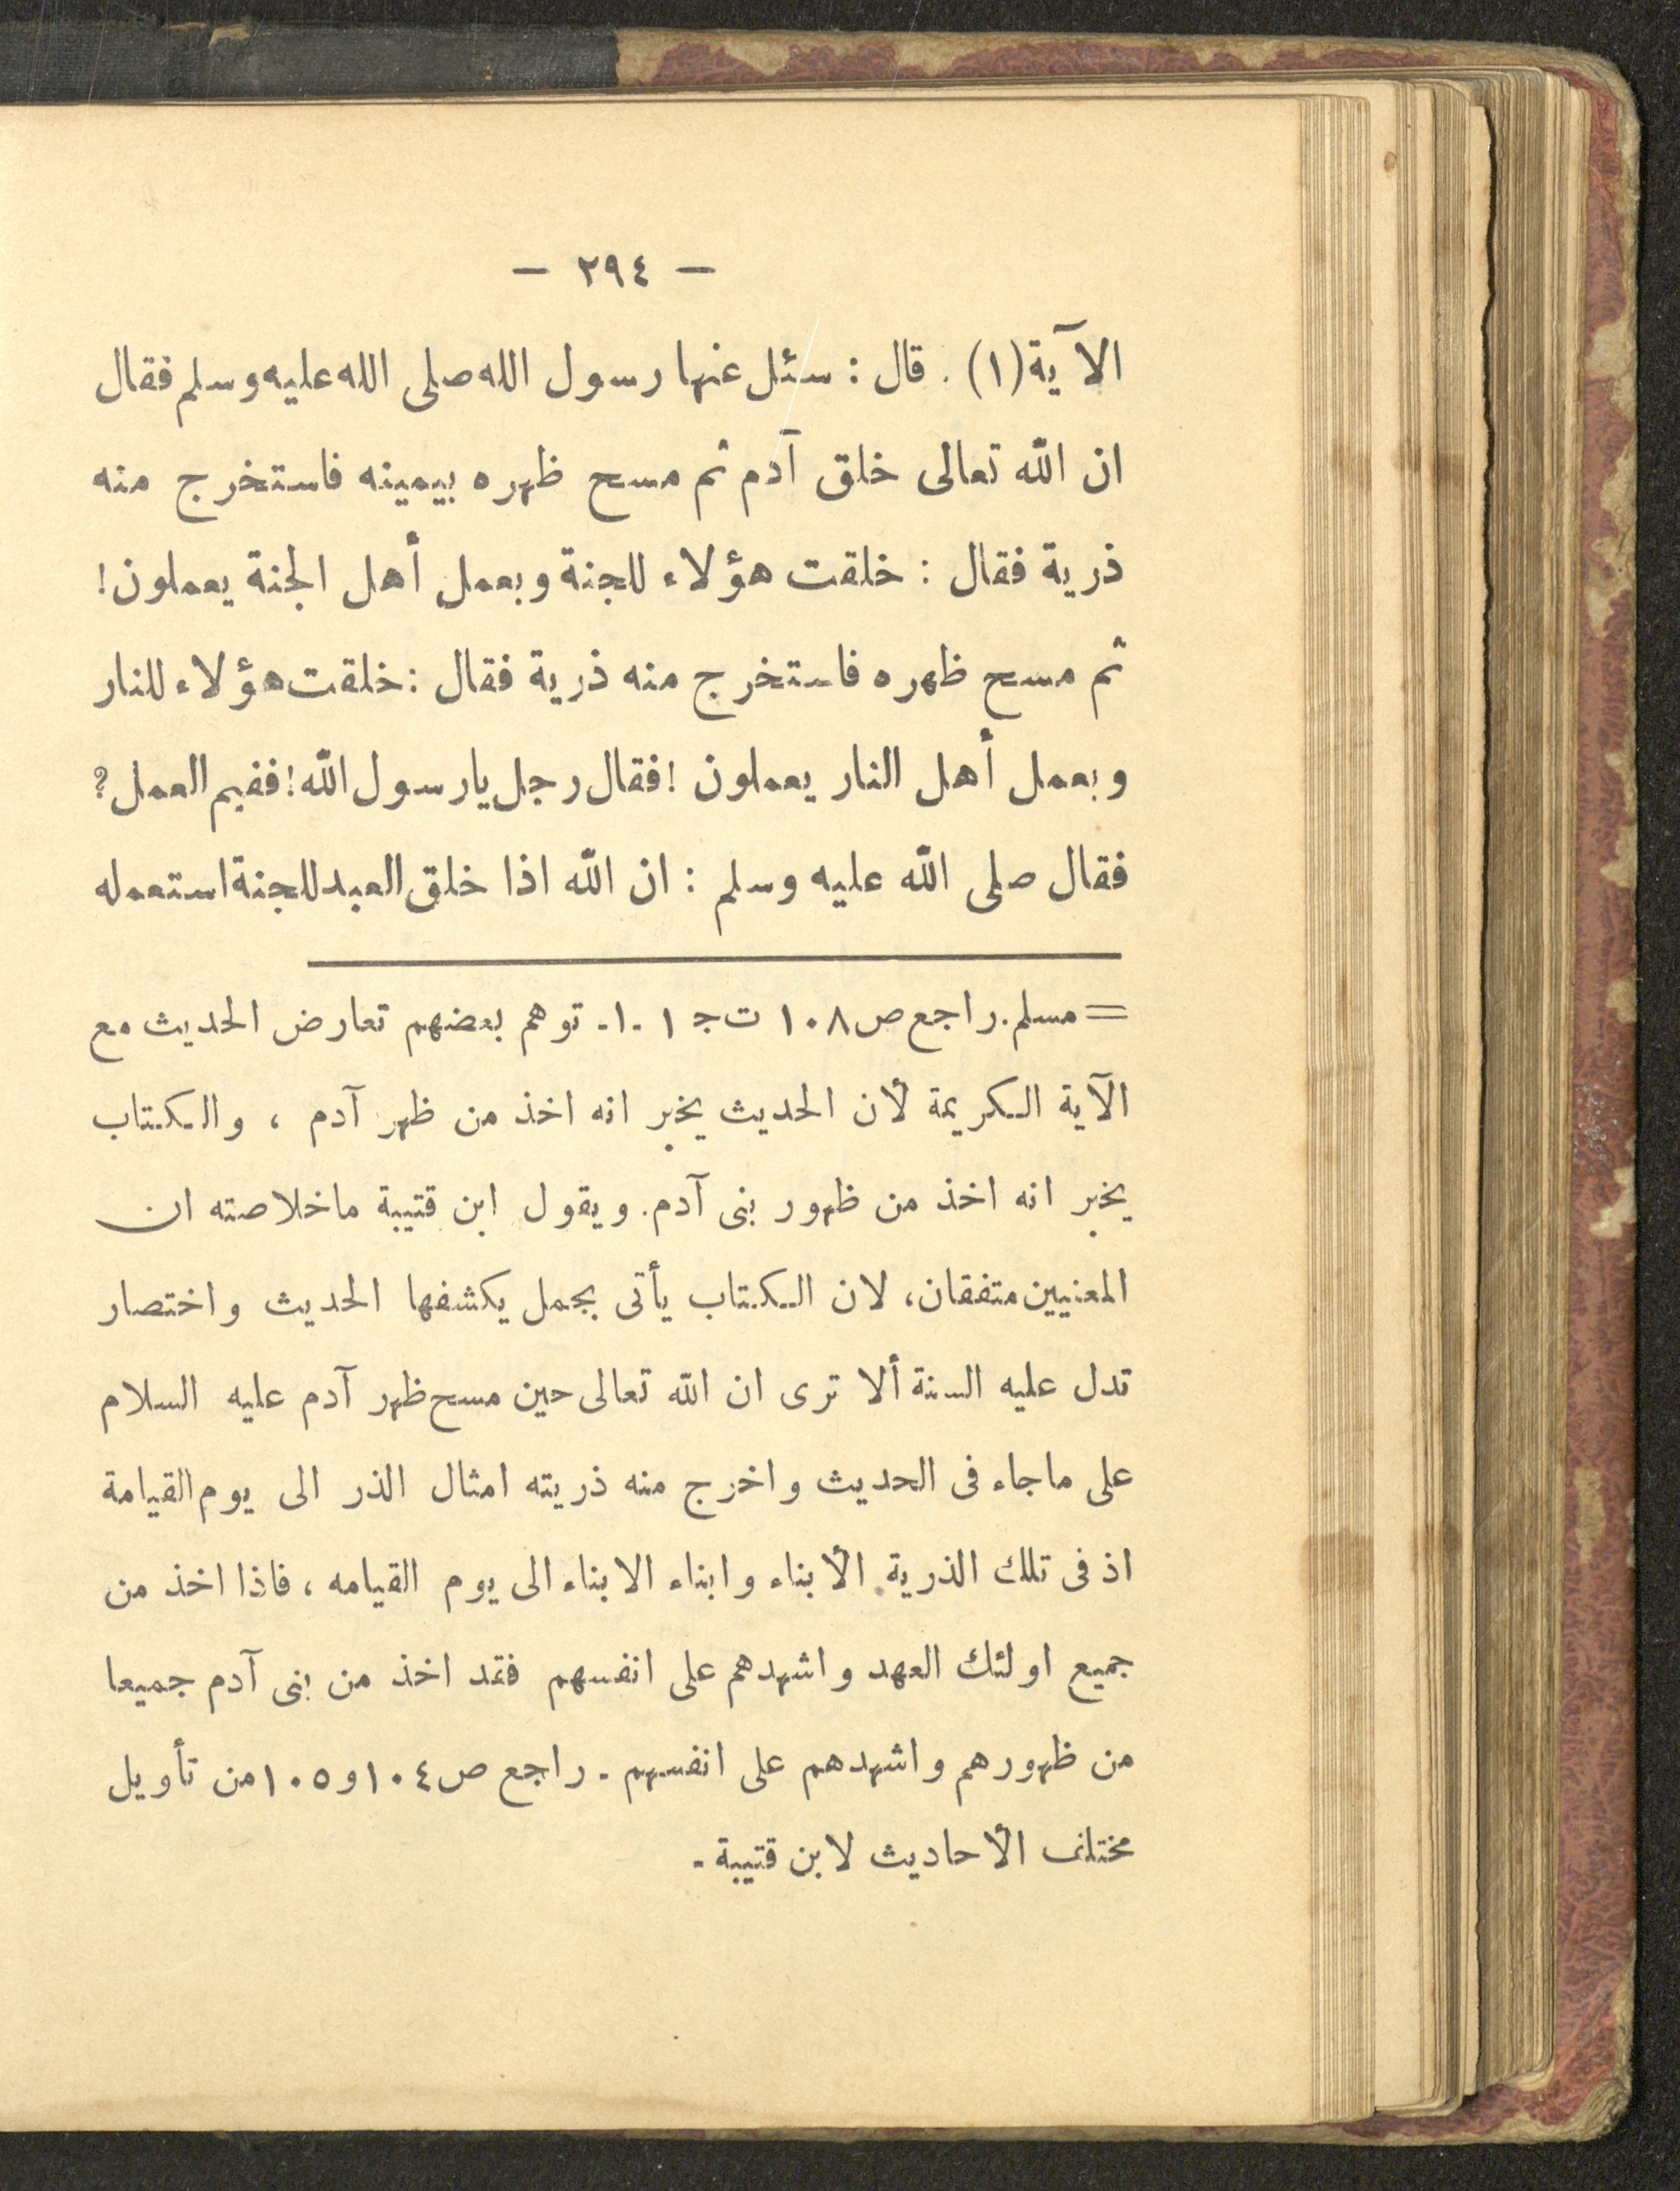 — ٢٩٤ —
الآية (١) . قال : سئل عنها رسول الله صلى الله عليه وسلم فقال
ان الله تعالى خلق آدم ثم مسح ظهره بيمينه فاستخرج منه
ذرية فقال : خلقت هؤلاء للجنة وبعمل أهل الجنة يعملون !
ثم مسح ظهره فاستخرج منه ذرية فقال : خلقت هؤلاء للنار
وبعمل أهل النار يعملون ! فقال رجل يا رسول الله ! ففيم العمل ؟
فقال صلى الله عليه وسلم : ان الله اذا خلق العبد للجنة استعمله
= مسلم . راجع ص ١٠٨ ت ج ١ - ١ - توهم بعضهم تعارض الحديث مع
الآية الكريمة لأن الحديث يخبر انه اخذ من ظهر آدم ، والكتاب
يخبر انه اخذ من ظهور بنى آدم . ويقول ابن قتيبة ماخلاصته ان
المعنيين متفقان ، لان الكتاب يأتى بجمل يكشفها الحديث واختصار
تدل عليه السنة ألا ترى ان الله تعالى حين مسح ظهر آدم عليه السلام
على ماجاء فى الحديث واخرج منه ذريته امثال الذر الى يوم القيامة
اذ فى تلك الذرية الأبناء وابناء الابناء الى يوم القيامه ، فاذا اخذ من
جميع اولئك العهد واشهدهم على انفسهم فقد اخذ من بنى آدم جميعا
من ظهورهم واشهدهم على انفسهم - راجع ص ١٠٤ و ١٠٥ من تأويل
مختلف الأحاديث لابن قتيبة -